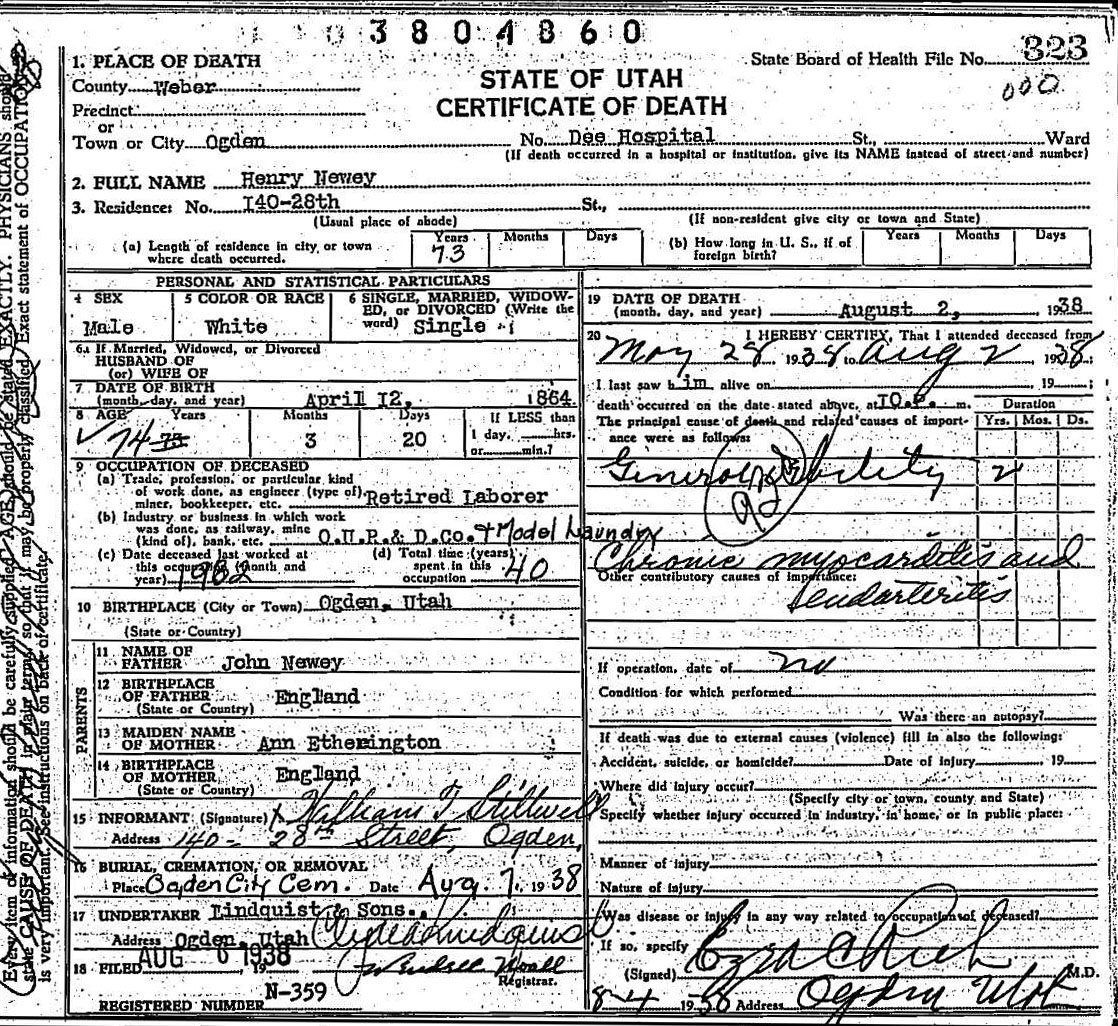 3804860
State Board of Health File No. 323
000
STATE OF UTAH
CERTIFICATE OF DEATH
1. PLACE OF DEATH
County Weber
Precinct
or
Town or City Ogden No. Dee Hospital St., Ward
(If death occurred in a hospital or institution, give its NAME instead of street and number)
2. FULL NAME Henry Newey
3. Residence: No. 140-28th St.,
(Usual place of abode) (If non-resident give city or town and State)
(a) Length of residence in city or town where death occurred. Years 73 Months Days
(b) How long in U. S., if of foreign birth? Years Months Days
PERSONAL AND STATISTICAL PARTICULARS
4 SEX Male
5 COLOR OR RACE White
6 SINGLE, MARRIED, WIDOWED, or DIVORCED (Write the word) Single
6a If Married, Widowed, or Divorced
HUSBAND OF
(or) WIFE OF
7 DATE OF BIRTH
(month, day, and year) April 12, 1864.
8 AGE Years 74 Months 3 Days 20 If LESS than
1 day, hrs.
or min.?
9 OCCUPATION OF DECEASED
(a) Trade, profession, or particular kind
of work done, as engineer (type of)
miner, bookkeeper, etc. Retired Laborer
(b) Industry or business in which work
was done, as railway, mine
(kind of), bank, etc. O.U.R.& D.Co. + Model Laundry
(c) Date deceased last worked at
this occupation (month and
year)
(d) Total time (years)
spent in this
occupation 40
10 BIRTHPLACE (City or Town) Ogden, Utah
(State or Country)
PARENTS
11 NAME OF
FATHER John Newey
12 BIRTHPLACE
OF FATHER England
(State or Country)
13 MAIDEN NAME
OF MOTHER Ann Etherington
14 BIRTHPLACE
OF MOTHER England
(State or Country)
15 INFORMANT (Signature) x William T Stillwell
Address 140- 28th Street, Ogden,
16 BURIAL, CREMATION, OR REMOVAL
Place Ogden City Cem. Date Aug. 7, 1938
17 UNDERTAKER Lindquist & Sons.
Address Ogden, Utah
18 FILED AUG 6 1938, 19
Registrar.
REGISTERED NUMBER N-359
19 DATE OF DEATH
(month, day, and year) August 2, 1938
20 I HEREBY CERTIFY, That I attended deceased from
May 28 1938 to Aug 2 1938;
I last saw him alive on 19 ;
death occurred on the date stated above, at 10.P. m.
Duration
The principal cause of death and related causes of importance were as follows: Yrs. Mos. Ds.
General debility 2
Chronic myocarditis and
Other contributory causes of importance:
endarteritis
If operation, date of no
Condition for which performed
Was there an autopsy?
If death was due to external causes (violence) fill in also the following:
Accident, suicide, or homicide? Date of injury 19
Where did injury occur?
(Specify city or town, county and State)
Specify whether injury occurred in industry, in home, or in public place:
Manner of injury
Nature of injury
Was disease or injury in any way related to occupation of deceased?
If so, specify
(Signed) Ezra C Rich M.D.
8-4 1938 Address Ogden Utah
Every item of information should be carefully supplied. AGE should be stated EXACTLY. PHYSICIANS should
state CAUSE OF DEATH in plain terms, so that it may be properly classified. Exact statement of OCCUPATION
is very important. See instructions on back of certificate.